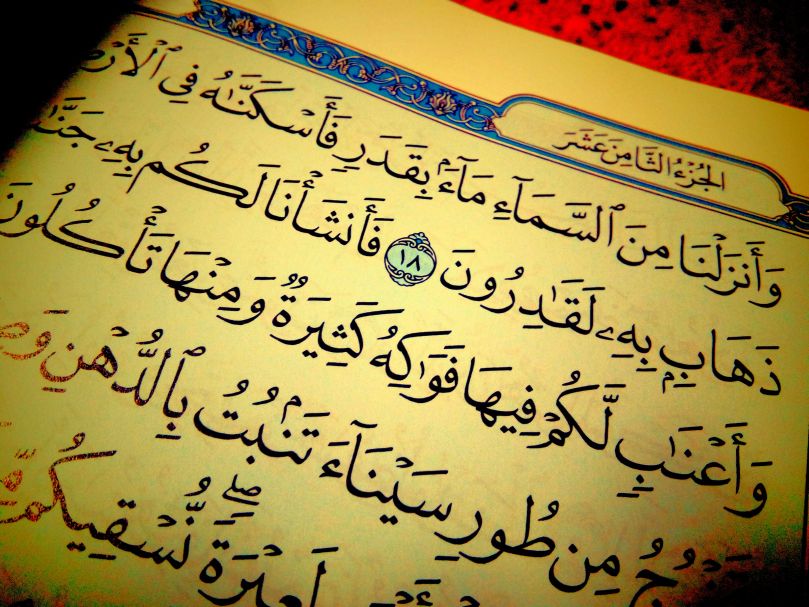 الجُزْءُ الثَّامِنَ عَشَرَ
وَأَنزَلْنَا مِنَ ٱلسَّمَآءِ مَآءًۢ بِقَدَرٍ فَأَسْكَنَّٰهُ فِى ٱلْأَرْضِ
ذَهَابٍۭ بِهِۦ لَقَٰدِرُونَ ١٨ فَأَنشَأْنَا لَكُم بِهِۦ جَنَّٰ
وَأَعْنَٰبٍ لَّكُمْ فِيهَا فَوَٰكِهُ كَثِيرَةٌ وَمِنْهَا تَأْكُلُونَ
مِن طُورِ سَيْنَآءَ تَنۢبُتُ بِٱلدُّهْنِ
لَعِبْرَةً ۖ نُّسْقِيكُم